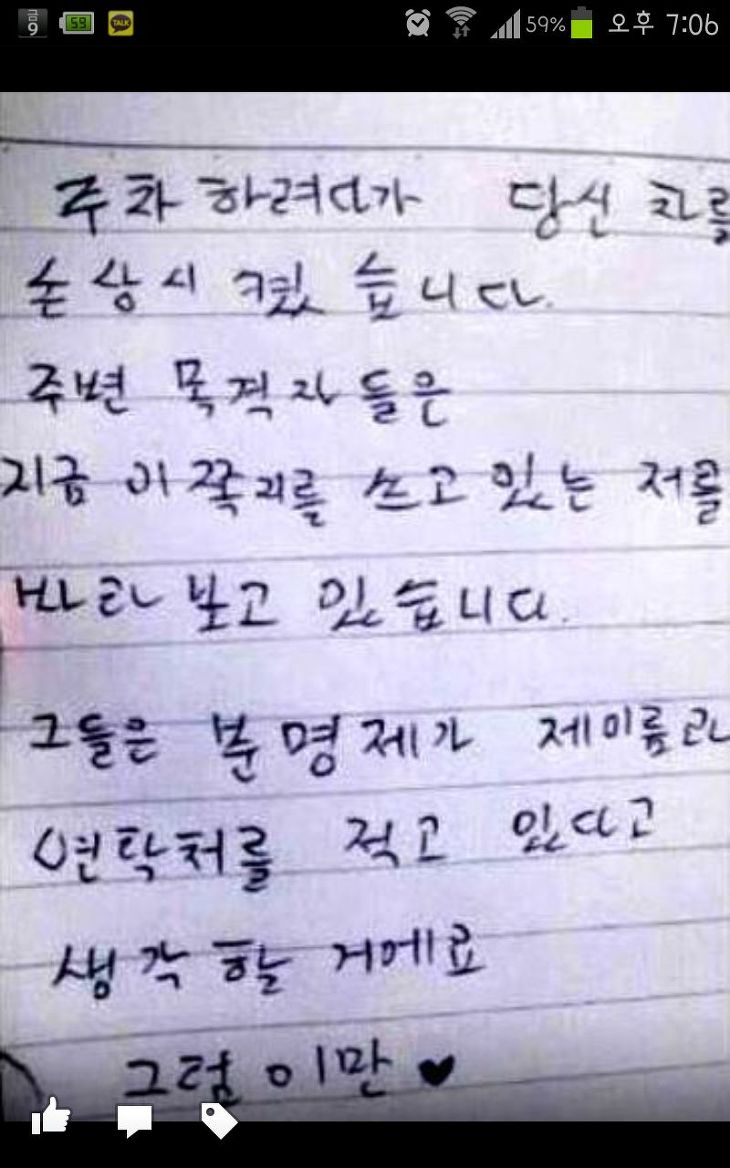 금
9
59
TALK
59%
오후 7:06
주차하려다가 당신 차를
손상시켰습니다.
주변 목격자들은
지금 이 쪽지를 쓰고 있는 저를
바라보고 있습니다.
그들은 분명 제가 제 이름과
연락처를 적고 있다고
생각할 거에요
그럼 이만 ♥